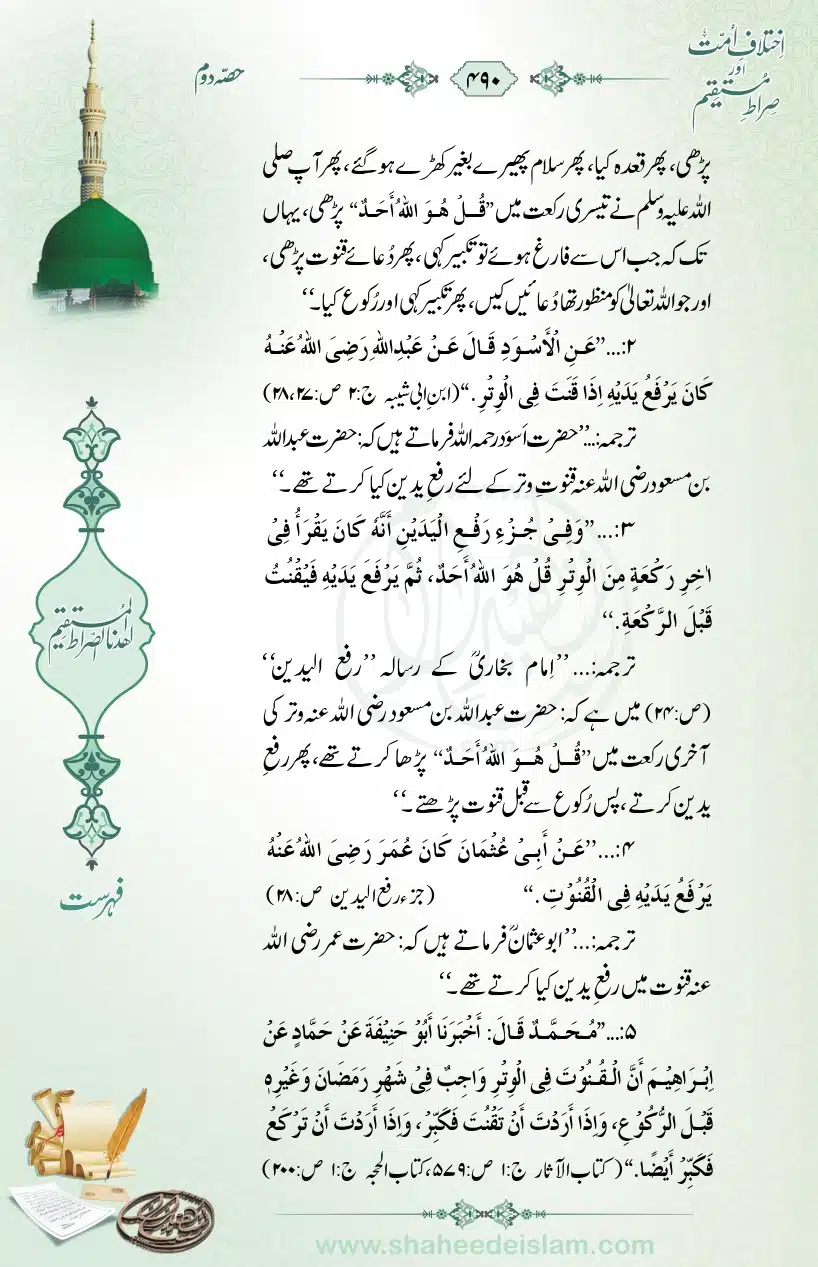 اِختلافِ اُمّت
اور
صراطِ مستقیم
۴۹۰
حصّہ دوم
پڑھی، پھر قعدہ کیا، پھر سلام پھیرے بغیر کھڑے ہوگئے، پھر آپ صلی
اللہ علیہ وسلم نے تیسری رکعت میں ”قُلْ هُوَ اللهُ أَحَدٌ“ پڑھی، یہاں
تک کہ جب اس سے فارغ ہوئے تو تکبیر کہی، پھر دُعائے قنوت پڑھی،
اور جو اللہ تعالیٰ کو منظور تھا دُعائیں کیں، پھر تکبیر کہی اور رُکوع کیا۔“
۲:...”عَنِ الْأَسْوَدِ قَالَ عَنْ عَبْدِاللهِ رَضِيَ اللهُ عَنْهُ
كَانَ يَرْفَعُ يَدَيْهِ اِذَا قَنَتَ فِي الْوِتْرِ.“ (ابنِ ابی شیبہ ج:۲ ص:۲۷، ۲۸)
ترجمہ:...”حضرت اَسود رحمہ اللہ فرماتے ہیں کہ: حضرت عبداللہ
بن مسعود رضی اللہ عنہ قنوتِ وتر کے لئے رفعِ یدین کیا کرتے تھے۔“
۳:...”وَفِيْ جُزْءِ رَفْعِ الْيَدَيْنِ أَنَّهٗ كَانَ يَقْرَأُ فِيْ
اٰخِرِ رَكْعَةٍ مِنَ الْوِتْرِ قُلْ هُوَ اللهُ أَحَدٌ، ثُمَّ يَرْفَعَ يَدَيْهِ فَيَقْنُتُ
قَبْلَ الرَّكْعَةِ.“
ترجمہ:...”اِمام بخاریؒ کے رسالہ ”رفع الیدین“
(ص:۲۴) میں ہے کہ: حضرت عبداللہ بن مسعود رضی اللہ عنہ وتر کی
آخری رکعت میں ”قُلْ هُوَ اللهُ أَحَدٌ“ پڑھا کرتے تھے، پھر رفعِ
یدین کرتے، پس رُکوع سے قبل قنوت پڑھتے۔“
۴:...”عَنْ أَبِيْ عُثْمَانَ كَانَ عُمَرَ رَضِيَ اللهُ عَنْهُ
يَرْفَعُ يَدَيْهِ فِي الْقُنُوْتِ.“ (جزء رفع الیدین ص:۲۸)
ترجمہ:...”ابو عثمانؒ فرماتے ہیں کہ: حضرت عمر رضی اللہ
عنہ قنوت میں رفعِ یدین کیا کرتے تھے۔“
۵:...”مُحَمَّدٌ قَالَ: أَخْبَرَنَا أَبُوْ حَنِيْفَةَ عَنْ حَمَّادٍ عَنْ
اِبْرَاهِيْمَ أَنَّ الْقُنُوْتَ فِي الْوِتْرِ وَاجِبٌ فِيْ شَهْرِ رَمَضَانَ وَغَيْرِهٖ
قَبْلَ الرُّكُوْعِ، وَاِذَا أَرَدْتَ أَنْ تَقْنُتَ فَكَبِّرْ، وَاِذَا أَرَدْتَ أَنْ تَرْكَعَ
فَكَبِّرْ أَيْضًا.“ (کتاب الآثار ج:۱ ص:۵۷۹، کتاب الحجہ ج:۱ ص:۲۰۰)
اھدنا الصراط المستقیم
فہرست
www.shaheedeislam.com